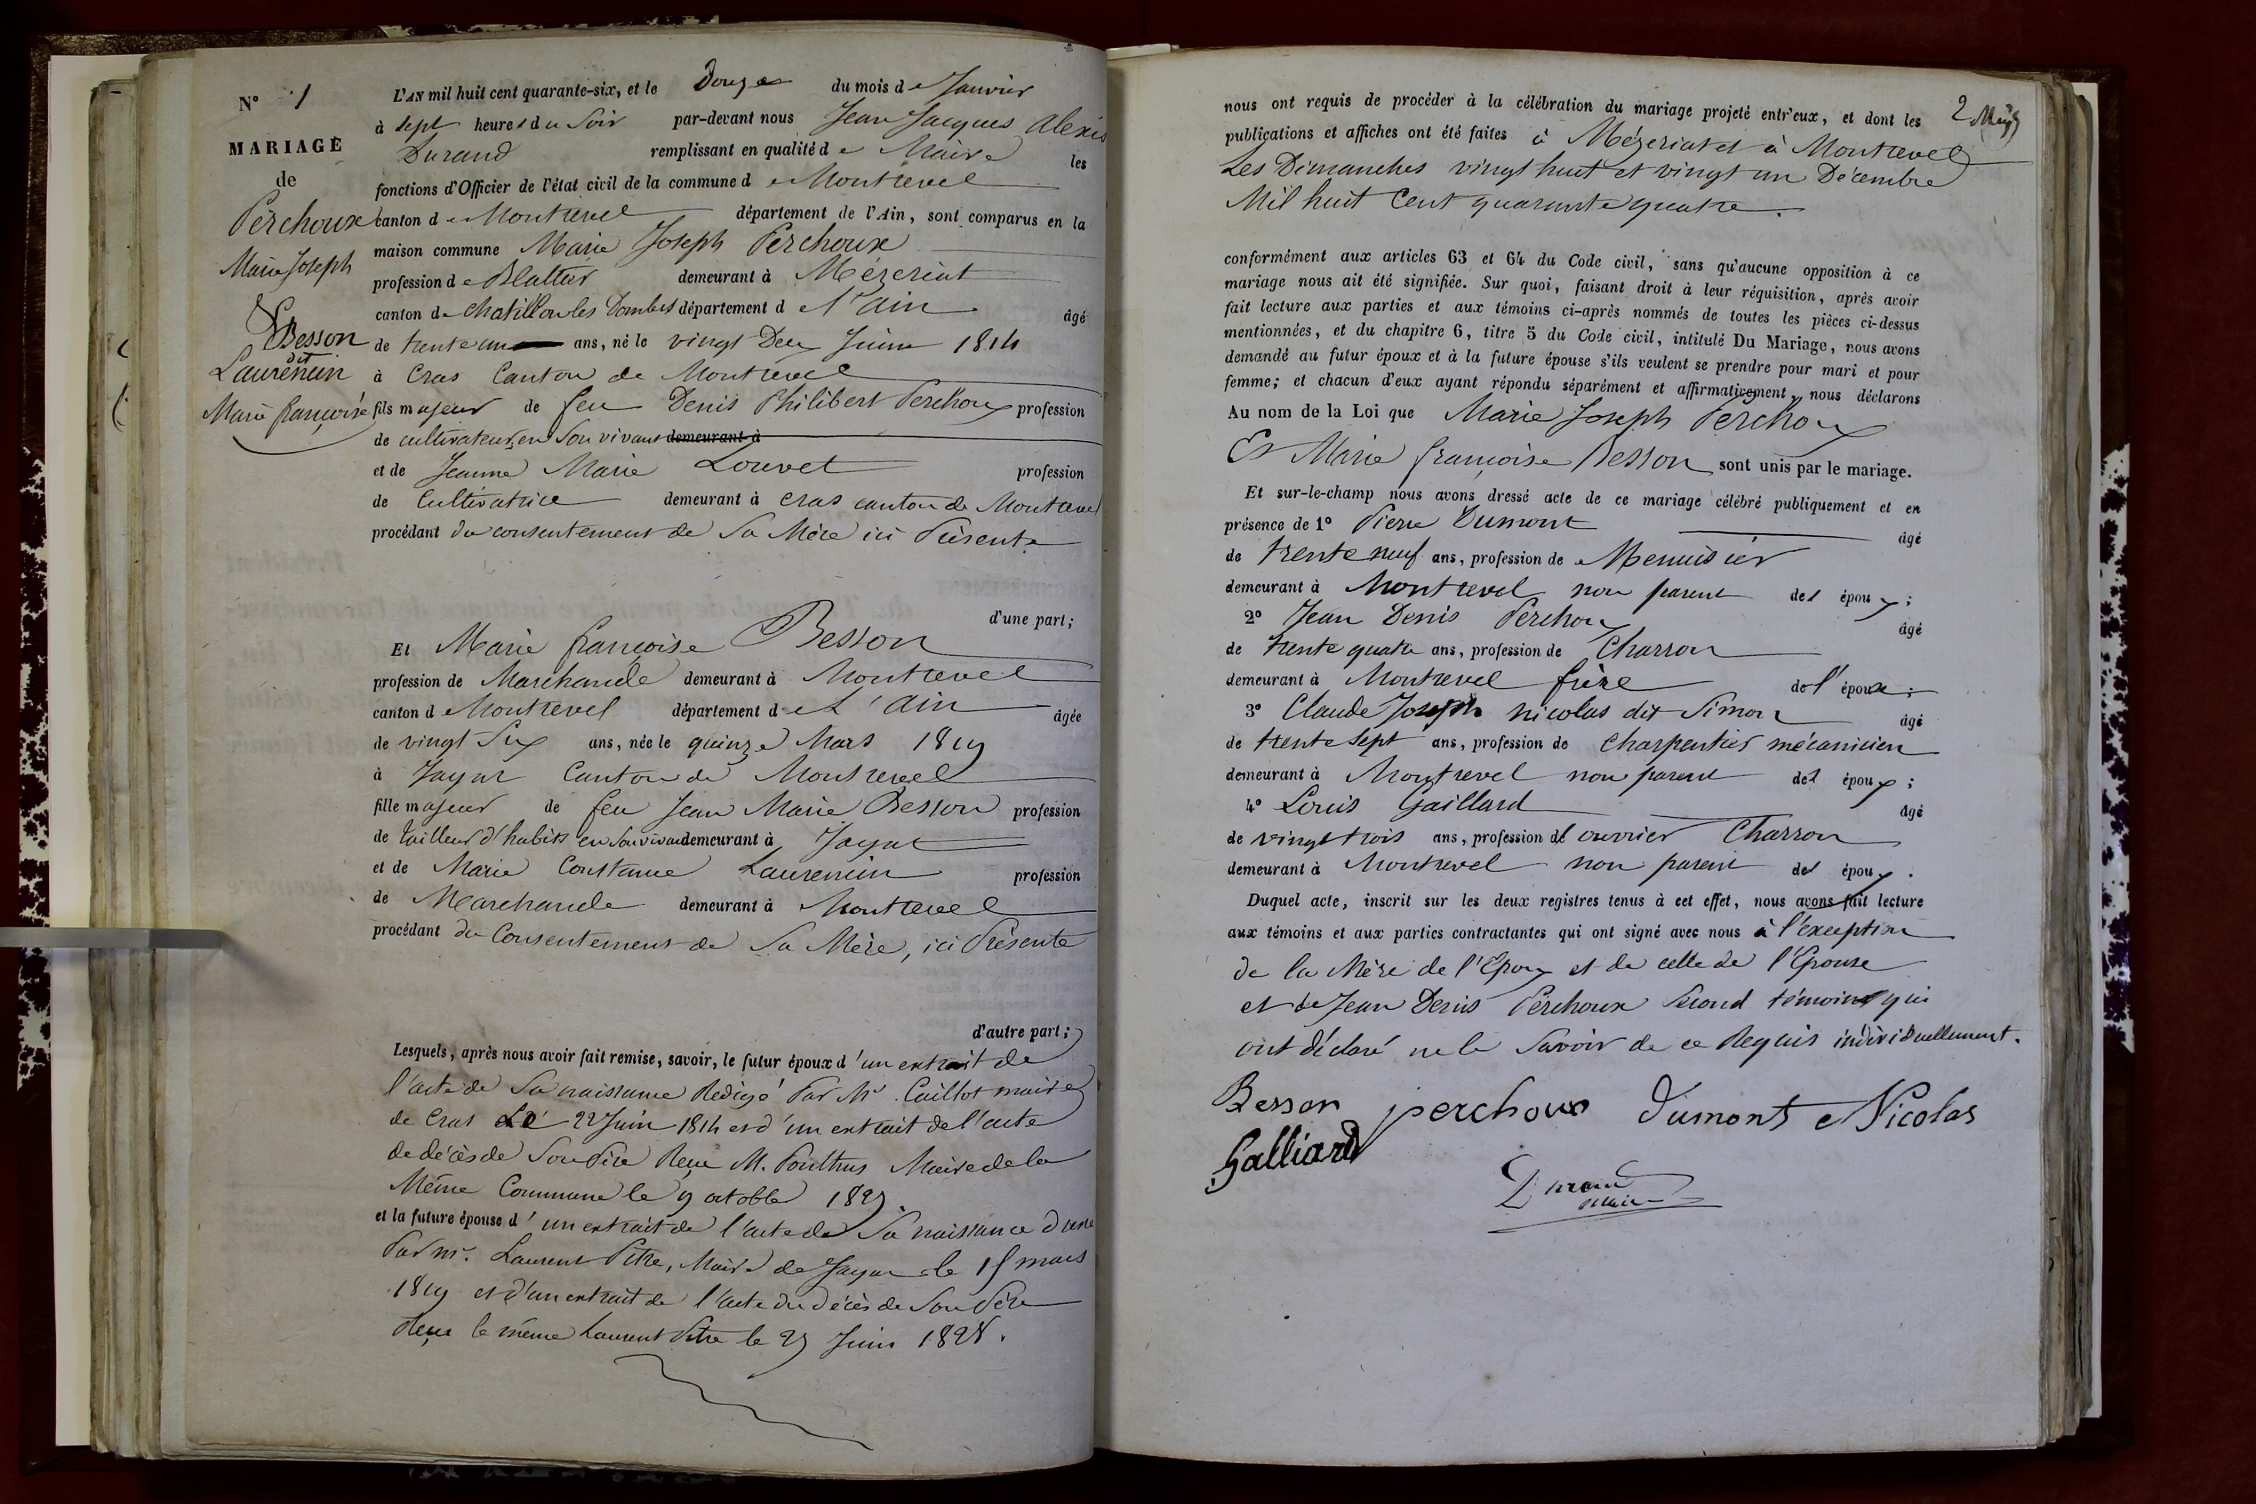 N° 1
MARIAGE
de
Perchoux
Marie Joseph
&
Besson
dit
Laurencin
Marie françoise
L'AN mil huit cent quarante-six, et le Douze du mois de Janvier
à sept heures du Soir par-devant nous Jean Jacques Alexis
Durand remplissant en qualité de Maire les
fonctions d'Officier de l'état civil de la commune de Montrevel
canton de Montrevel département de l'Ain, sont comparus en la
maison commune Marie Joseph Perchoux
profession de Blattier demeurant à Mézériat
canton de Chatillon les Dombes département de l'ain âgé
de trente un ans, né le vingt Deux Juin 1814
à Cras Canton de Montrevel
fils majeur de feu Denis Philibert Perchoux profession
de cultivateur en Son vivant demeurant à
et de Jeanne Marie Louvet profession
de Cultivatrice demeurant à Cras canton de Montrevel
procédant du consentement de Sa Mère ici Présente
d'une part;
Et Marie françoise Besson
profession de Marchande demeurant à Montrevel
canton de Montrevel département de L'Ain âgée
de vingt Six ans, née le quinze Mars 1819
à Jayat Canton de Montrevel
fille majeur de feu Jean Marie Besson profession
de tailleur d'habits en son vivant demeurant à Jayat
et de Marie Constance Laurencin profession
de Marchande demeurant à Montrevel
procédant du Consentement de Sa Mère, ici Présente
d'autre part;
Lesquels, après nous avoir fait remise, savoir, le futur époux d'un extrait de
l'acte de Sa naissance Rédigé Par Mr. Caillot maire
de Cras Le 22 Juin 1814 et d'un extrait de l'acte
de décès de Son Père Reçu M. Ponthus Maire de la
Même Commune le 9 octobre 1829
et la future épouse d'un extrait de l'acte de Sa naissance
Par mr. Laurent Pitre, Maire de Jayat le 15 mars
1819 et d'un extrait de l'acte du décès de Son Père
Reçu le même Laurent Pitre le 29 Juin 1828.
2
nous ont requis de procéder à la célébration du mariage projeté entr'eux, et dont les
publications et affiches ont été faites à Mézeriat et à Montrevel
Les Dimanches vingt huit et vingt un Décembre
Mil huit Cent quarante quatre.
conformément aux articles 63 et 64 du Code civil, sans qu'aucune opposition à ce
mariage nous ait été signifiée. Sur quoi, faisant droit à leur réquisition, après avoir
fait lecture aux parties et aux témoins ci-après nommés de toutes les pièces ci-dessus
mentionnées, et du chapitre 6, titre 5 du Code civil, intitulé Du Mariage, nous avons
demandé au futur époux et à la future épouse s'ils veulent se prendre pour mari et pour
femme; et chacun d'eux ayant répondu séparément et affirmativement, nous déclarons
Au nom de la Loi que Marie Joseph Perchoux
Et Marie françoise Besson sont unis par le mariage.
Et sur-le-champ nous avons dressé acte de ce mariage célébré publiquement et en
présence de 1° Pierre Dumont âgé
de trente neuf ans, profession de Menuisier
demeurant à Montrevel non parent des époux;
2° Jean Denis Perchoux âgé
de trente quatre ans, profession de Charron
demeurant à Montrevel frère de l'époux;
3° Claude Joseph nicolas dit Simon âgé
de trente sept ans, profession de Charpentier mécanicien
demeurant à Montrevel non parent des époux;
4° Louis Gaillard âgé
de vingt trois ans, profession d'ouvrier Charron
demeurant à Montrevel non parent des époux.
Duquel acte, inscrit sur les deux registres tenus à cet effet, nous avons fait lecture
aux témoins et aux parties contractantes qui ont signé avec nous à l'exception
de la Mère de l'Epoux et de celle de l'Epouse
et de Jean Denis Perchoux Second témoin qui
ont déclaré ne le Savoir de ce Requis individuellement.
Besson perchoux Dumont Nicolas
Galliard
Durand
maire